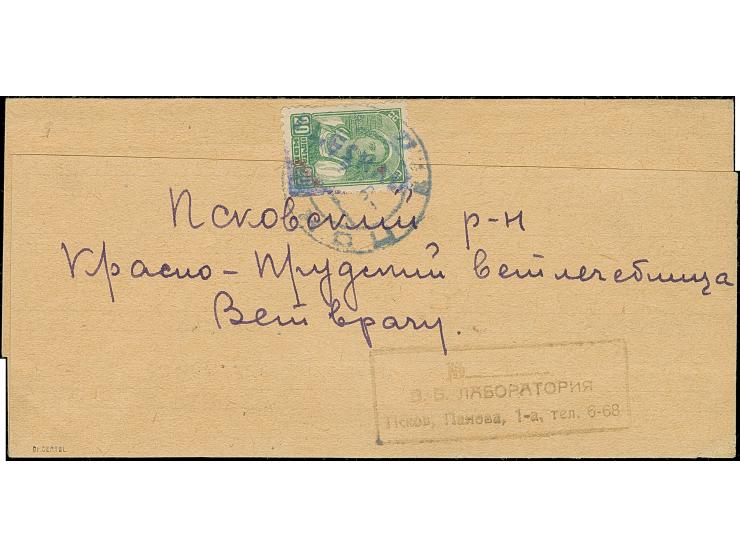 20
Псковский р-н
Красно-Прудский ветлечебница
Вет врачу.
№
В. Б. ЛАБОРАТОРИЯ
Псков, Панова, 1-а, тел. 6-68